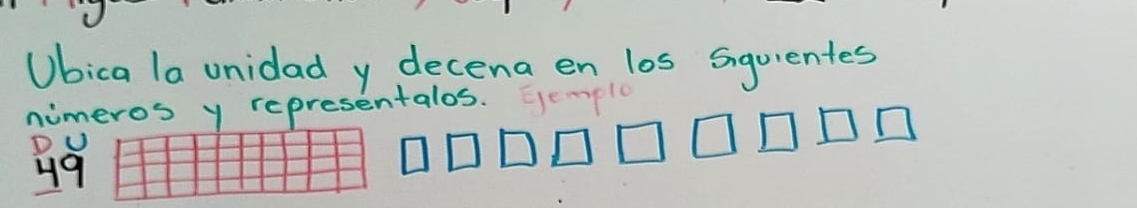 Ubica la unidad y decena en los siguientes
números y represéntalos. Ejemplo
D U
49